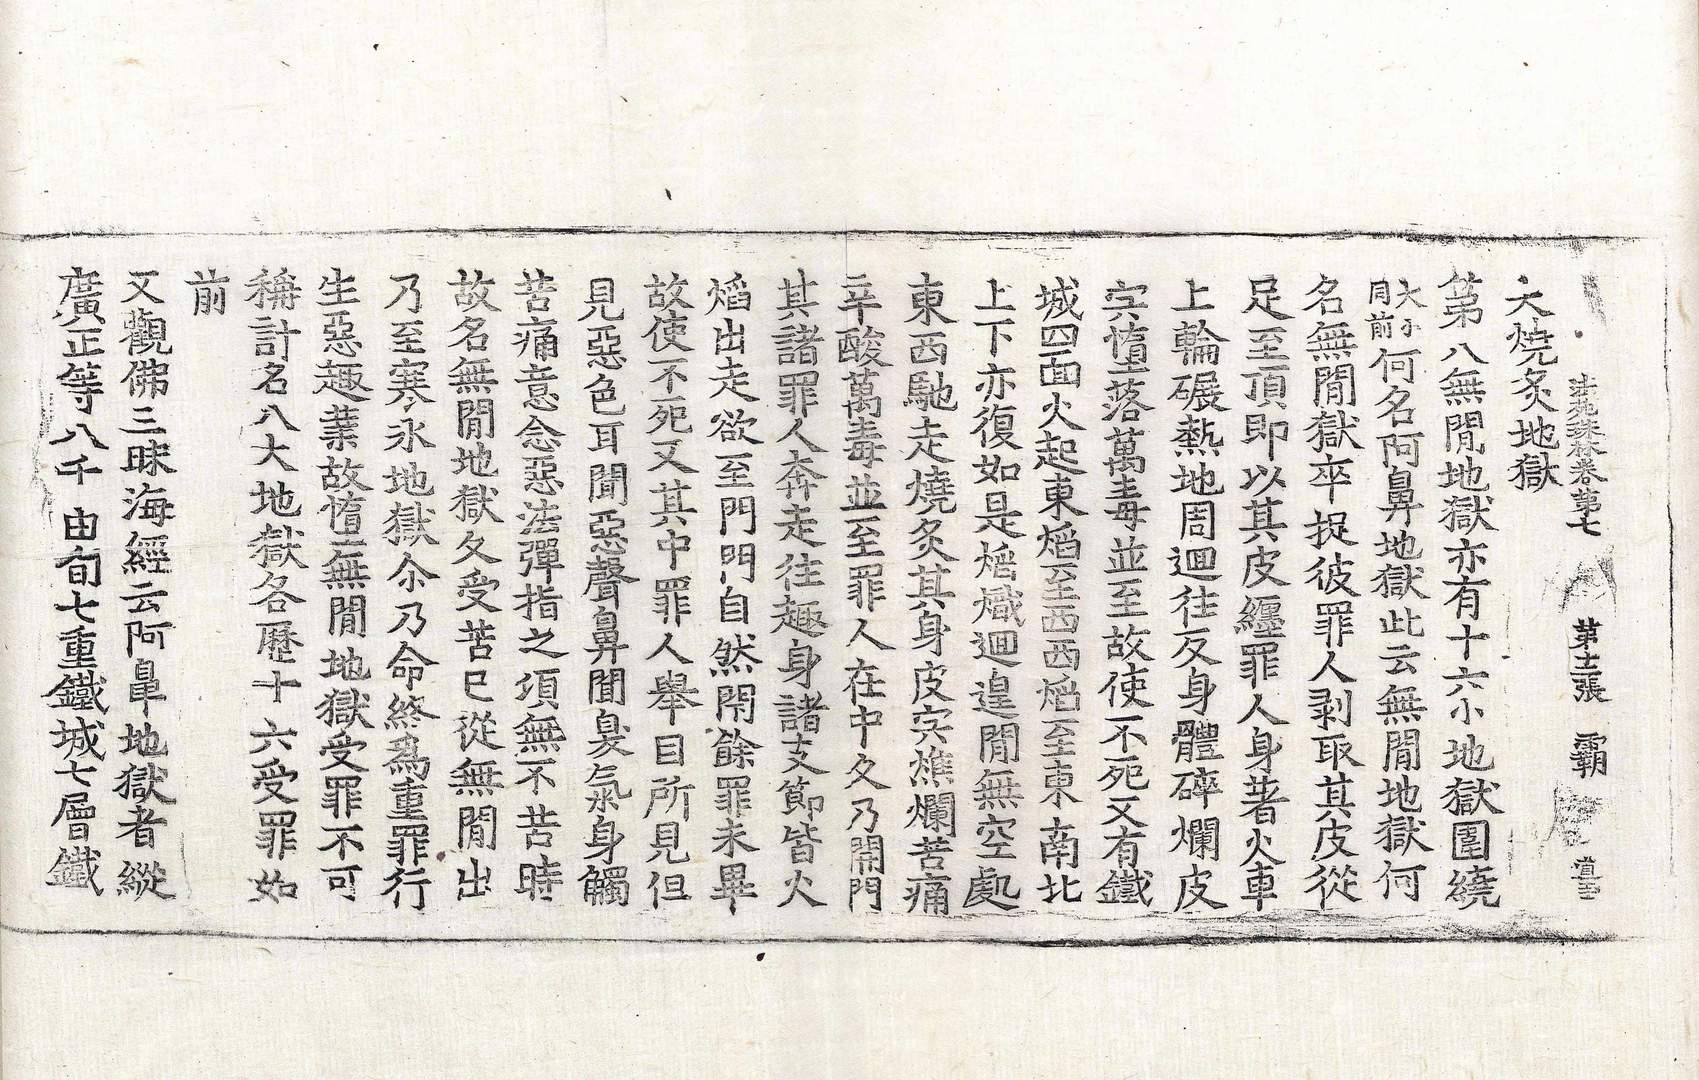 法苑珠林卷第七 第十二張 霸
大燒炙地獄
第八無間地獄亦有十六小地獄圍繞
大小同前何名阿鼻地獄此云無間地獄何
名無間獄卒捉彼罪人剥取其皮從
足至頂即以其皮纏罪人身著火車
上輪碾熱地周迴往反身體碎爛皮
宍墮落萬毒並至故使不死又有鐵
城四面火起東熖至西西熖至東南北
上下亦復如是熖熾迴遑間無空處
東西馳走燒炙其身皮宍燋爛苦痛
辛酸萬毒並至罪人在中久乃開門
其諸罪人奔走往趣身諸支節皆火
熖出走欲至門門自然閇餘罪未畢
故使不死又其中罪人舉目所見但
見惡色耳聞惡聲鼻聞臭氣身觸
苦痛意念惡法彈指之須無不苦時
故名無間地獄久受苦已從無間出
乃至寒氷地獄尒乃命終爲重罪行
生惡趣業故墮無間地獄受罪不可
稱計名八大地獄各歷十六受罪如
前
又觀佛三昧海經云阿鼻地獄者縱
廣正等八千由旬七重鐵城七層鐵